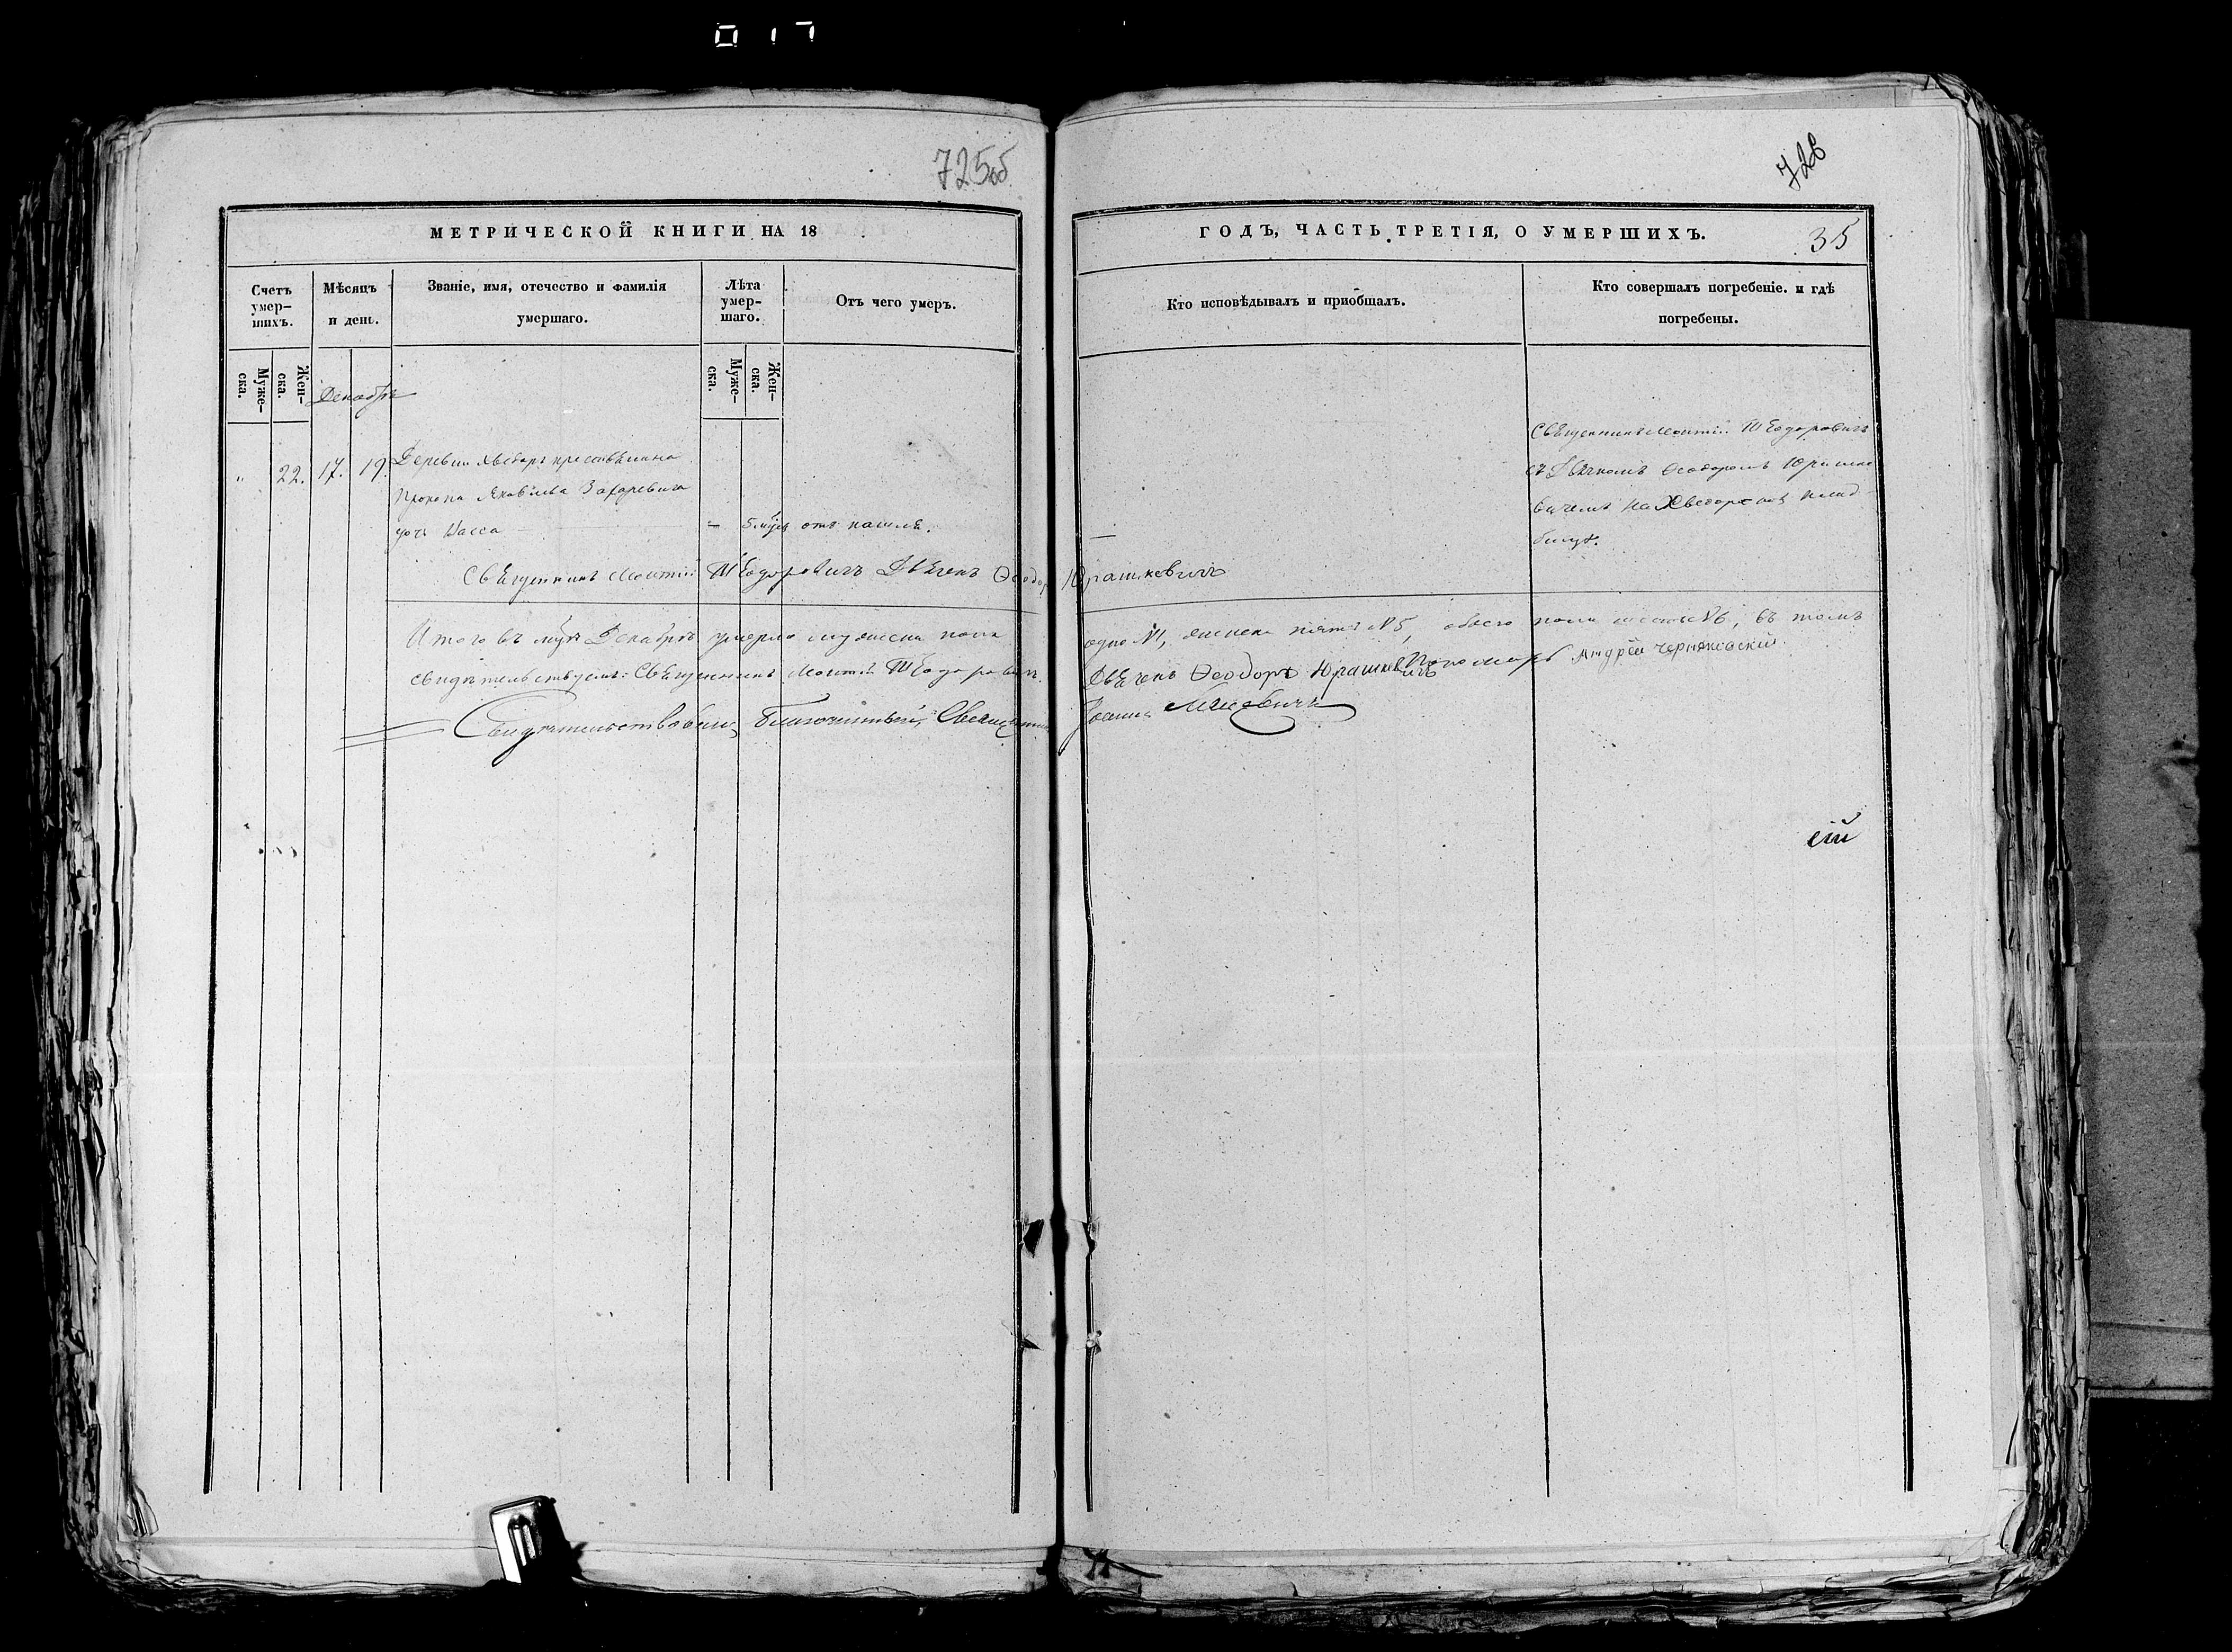 017
725об
726
МЕТРИЧЕСКОЙ КНИГИ НА 18
ГОДЪ, ЧАСТЬ ТРЕТІЯ, О УМЕРШИХЪ.
35
Счетъ умер-шихъ.
Мѣсяцъ и день.
Званіе, имя, отечество и фамилія умершаго.
Лѣта умер-шаго.
Отъ чего умеръ.
Кто исповѣдывалъ и пріобщалъ.
Кто совершалъ погребеніе. и гдѣ погребены.
Муже-ска.
Жен-ска.
Муже-ска.
Жен-ска.
Декабрь
" 22. 17. 19.
Деревни крестьянина
Прокопа Яковлева Захаревича
дочь Васса
– 5 отъ кашля.
Священникъ Теодоровичъ
съ Дьячкомъ Ѳеодоромъ Юрашке
вичемъ на клад
бищѣ.
Священникъ Теодоровичъ Дьячекъ Ѳеодоръ Юрашкевичъ
Итого въ Декабрѣ умерло мужеска пола одно №1, женска пять №5, обоего пола шесть №6, въ томъ
свидѣтельствуемъ: Священникъ Теодоровичъ. Дьячекъ Ѳеодоръ Юрашкевичъ Пономарь Андрей Черняковскій
Свидѣтельствовалъ Благочинный, Священникъ Іоаннъ
ей